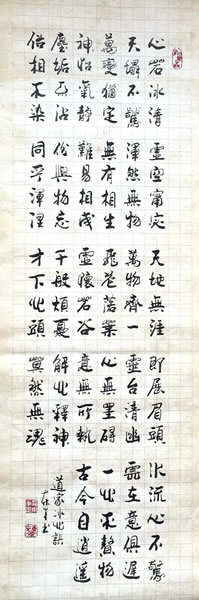 心若冰清
天塌不驚
萬變猶定
神怡氣靜
塵垢不沾
俗相不染
虛空甯宓
渾然無物
無有相生
難易相成
份與物忘
同乎渾涅
天地無涯
萬物齊一
飛花落葉
虛懷若谷
千般煩憂
才下心頭
即展眉頭
靈台清幽
心無罣礙
意無所執
解心釋神
莫然無魂
水流心不驚
雲在意俱遲
一心不贅物
古今自逍遙
道家冰心訣